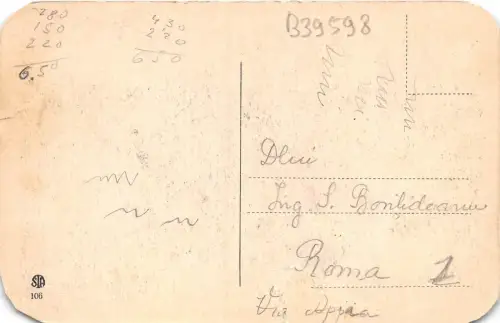 280
150
220
6.50
430
220
650
B39598
Dlui
Ing. S. Bonţideanu
Roma 1
Via Appia
STA
106